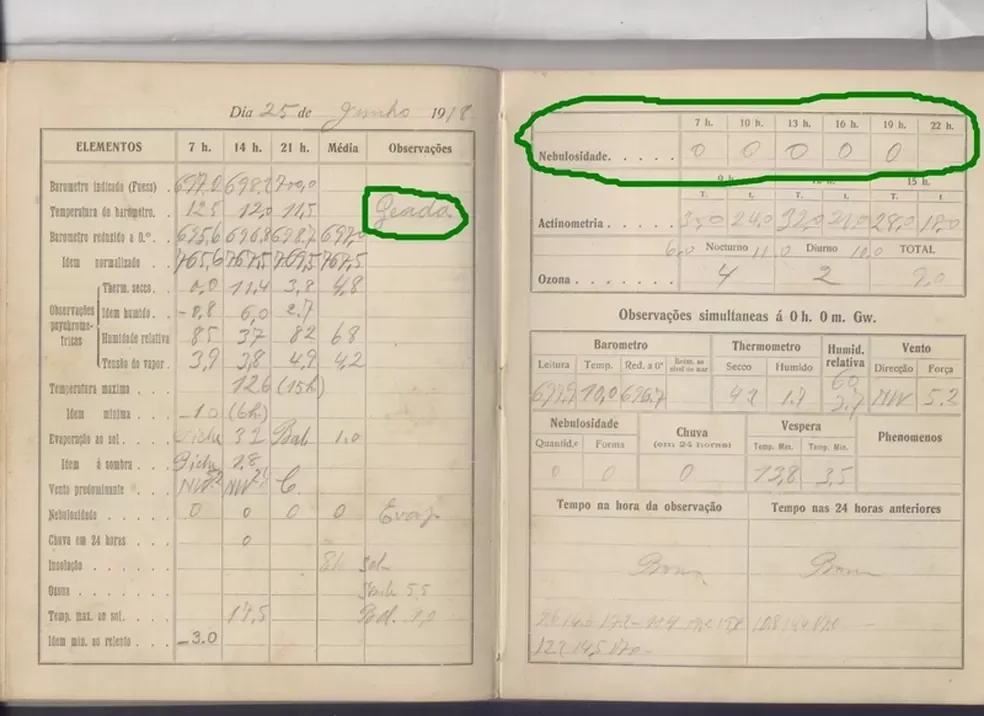 Dia 25 de Junho 1918
ELEMENTOS 7 h. 14 h. 21 h. Média Observações
Barometro indicado (Fuess) . 697,0 698,2 700,0
Temperatura do barómetro. . 12,5 12,0 11,5 Geada
Barometro reduzido a 0.º . 695,6 696,8 698,7 697,0
Idem normalizado . . 765,6 767,5 769,5 767,5
Observações psychrome-tricas
Therm. secco. . 0,0 11,4 3,8 4,8
Idem humido. . -0,8 6,0 2.7
Humidade relativa 85 37 82 68
Tensão do vapor . 3,9 3,8 4,9 4,2
Temperatura maxima . . . 12.6 (15h)
Idem minima . . . -1.0 (6h)
Evaporação ao sol . . . . Piche 3.2 Bal. 1.0
Idem á sombra . . . Piche 1.8
Vento predominante . . . NW NW C.
Nebulosidade . . . . . 0 0 0 0 Evap.
Chuva em 24 horas . . . 0
Insolação . . . . . 8h Sol.
Ozona . . . . . 5,5
Temp. max. ao sol. . . . 17,5 Bal. 1,0
Idem min. ao relento . . -3.0
7 h. 10 h. 13 h. 16 h. 19 h. 22 h.
Nebulosidade. . . . . 0 0 0 0 0
9 h. 15 h.
T. t. T. t. T. t
Actinometria . . . . . 35,0 24,0 32,0 21,0 28,0 18,0
6,0 Nocturno 11,0 Diurno 10,0 TOTAL
Ozona . . . . . . . 4 2 9,0
Observações simultaneas á 0 h. 0 m. Gw.
Barometro Thermometro Humid. relativa Vento
Leitura Temp. Red. a 0º Reom. ao nível do mar Secco Humido Direcção Força
697,9 10,0 696,7 4.2 1.7 60 3.7 NW 5.2
Nebulosidade Chuva (em 24 horas) Vespera Phenomenos
Quantid.e Forma Temp. Max. Temp. Min.
0 0 0 13,8 3,5
Tempo na hora da observação Tempo nas 24 horas anteriores
Bom Bom